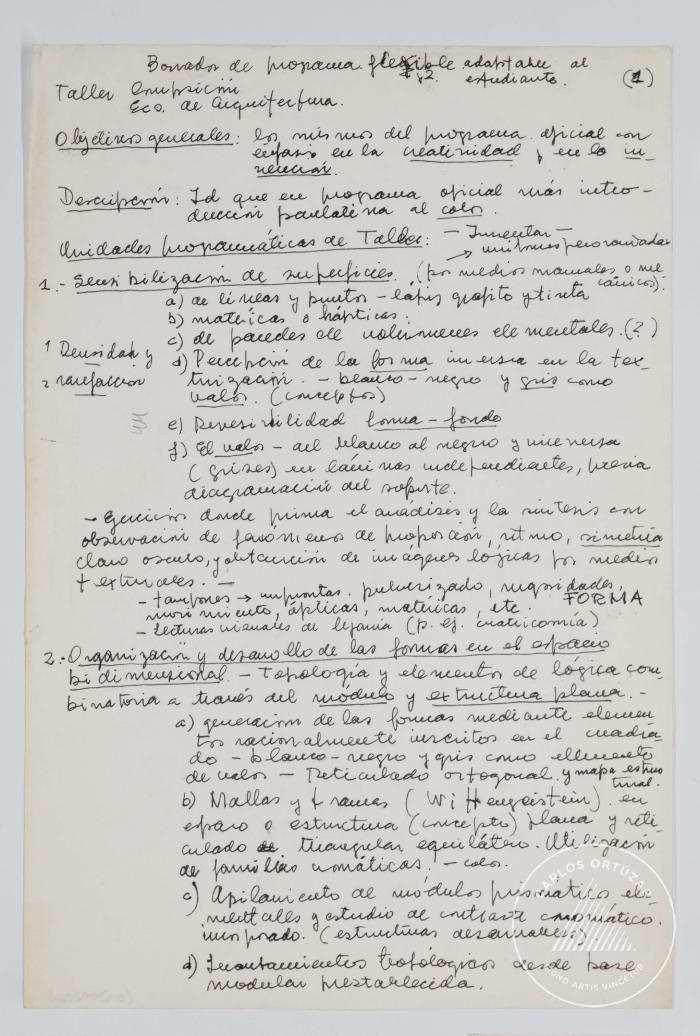 Borrador de programa flexible adaptable al
v2. estudiante. (1)
Taller Composición
Esc. de Arquitectura.
Objetivos generales: los mismos del programa oficial con
énfasis en la creatividad y en la in-
vención.
Descripción: Id que en programa oficial más intro-
ducción paulatina al color.
Unidades programáticas de Taller: - Inventar -
→ uniformes pero variadas
1.- Sensibilización de superficies. (por medios manuales o me
cánicos):
a) de líneas y puntos - lápiz grafito y tinta
b) matéricas o hápticas.
c) de paredes de volúmenes elementales. (?)
1 Densidad y
2 rarefacción
d) Percepción de la forma inversa en la tex-
turización. - blanco - negro y gris como
valor. (conceptos)
e) Reversibilidad forma - fondo
f) El valor - del blanco al negro y viceversa
(grises) en láminas independientes, previa
diagramación del soporte.
- Ejercicios donde prima el análisis y la síntesis con
observación de fenómenos de proporción, ritmo, simetría
claro oscuro, y obtención de imágenes lógicas por medios
texturales. -
- tampones → improntas. pulverizado, rugosidades,
FORMA
movimiento, ópticas, matéricas, etc.
- Lecturas visuales de lejanía (p. ej. cuatricomía)
2.- Organización y desarrollo de las formas en el espacio
bidimensional. - Topología y elementos de lógica com-
binatoria a través del módulo y estructura plana. -
a) generación de las formas mediante elemen-
tos racionalmente inscritos en el cuadra-
do - blanco - negro y gris como elemento
de valor - Reticulado ortogonal. y mapa estruc
tural.
b) Mallas y tramas (Wittengeistein). en
espacio o estructura (concepto) plana y reti-
culado de triangular equilátero. Utilización
de familias cromáticas. - color.
c) Apilamiento de módulos prismáticos ele-
mentales y estudio de contraste cromático.
incorporado. (estructuras desarmables)
d) Incrustamientos topológicos desde base
modular prestablecida.
CARLOS ORTÚZAR
BONO ARTIS VINCETUR